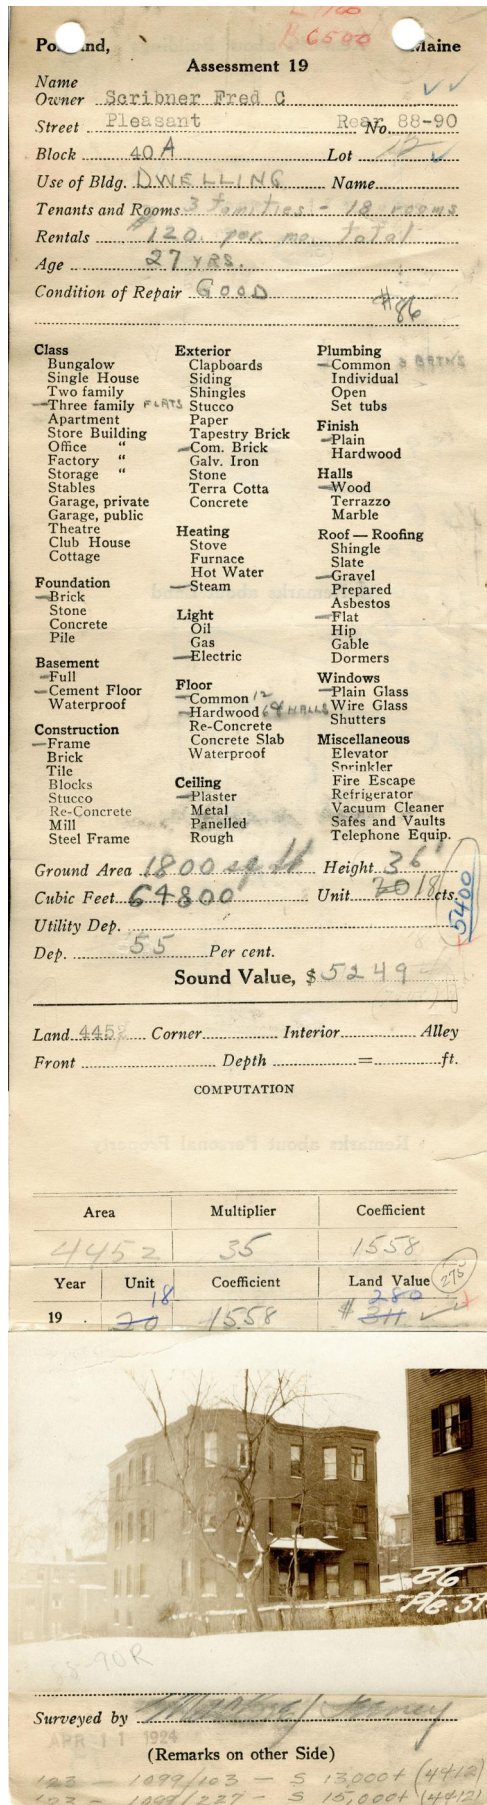 B 6500
Po nd, Maine
Assessment 19
Name
Owner Scribner Fred C
Street Pleasant Rear No. 88-90
Block 40 A Lot 12
Use of Bldg. DWELLING Name
Tenants and Rooms 3 families - 18 rooms
Rentals $120. per mo. total
Age 27 YRS.
Condition of Repair GOOD
#86
Class
Bungalow
Single House
Two family
Three family FLATS
Apartment
Store Building
Office "
Factory "
Storage "
Stables
Garage, private
Garage, public
Theatre
Club House
Cottage
Foundation
Brick
Stone
Concrete
Pile
Basement
Full
Cement Floor
Waterproof
Construction
Frame
Brick
Tile
Blocks
Stucco
Re-Concrete
Mill
Steel Frame
Exterior
Clapboards
Siding
Shingles
Stucco
Paper
Tapestry Brick
Com. Brick
Galv. Iron
Stone
Terra Cotta
Concrete
Heating
Stove
Furnace
Hot Water
Steam
Light
Oil
Gas
Electric
Floor
Common 12
Hardwood 6 & HALLS
Re-Concrete
Concrete Slab
Waterproof
Ceiling
Plaster
Metal
Panelled
Rough
Plumbing
Common 3 BATHS
Individual
Open
Set tubs
Finish
Plain
Hardwood
Halls
Wood
Terrazzo
Marble
Roof — Roofing
Shingle
Slate
Gravel
Prepared
Asbestos
Flat
Hip
Gable
Dormers
Windows
Plain Glass
Wire Glass
Shutters
Miscellaneous
Elevator
Sprinkler
Fire Escape
Refrigerator
Vacuum Cleaner
Safes and Vaults
Telephone Equip.
Ground Area 1800 sq ft Height 36'
Cubic Feet 64800 Unit 20 18 cts.
5400
Utility Dep.
Dep. 55 Per cent.
Sound Value, $ 5249
Land 4452 Corner Interior Alley
Front Depth = ft.
COMPUTATION
Area Multiplier Coefficient
4452 35 1558
Year Unit Coefficient Land Value 275
18 280
19 . 20 1558 $ 311
86
Ple. St
88-90R
Surveyed by
APR 11 1924
(Remarks on other Side)
123 - 1099/103 - S 13,000+ (4412)
123 - 1099/227 - S 15,000+ (4412)